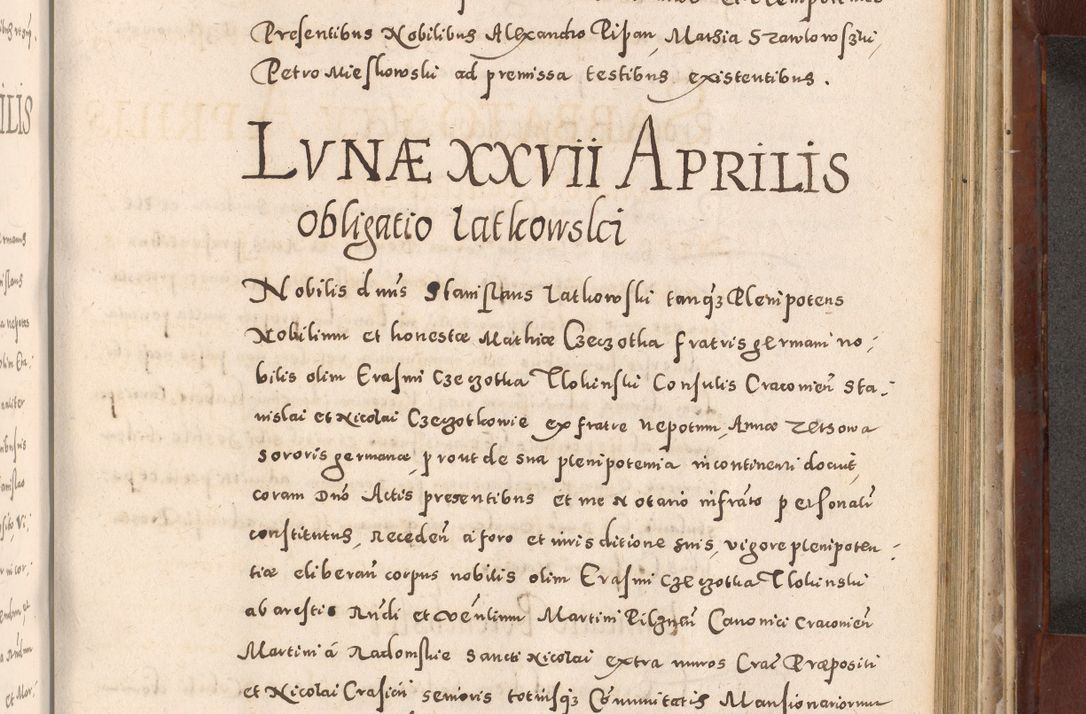 Presentibus Nobilibus Alexandro Pipan, Mathia Szawlowszki,
Petro Mieskowski ad premissa testibus existentibus.
LVNÆ XXVII APRILIS
Obligatio Iatkowski
Nobilis dnūs Stanislaus Iatkowski tanqz Plenipotens
Nobilium et honestæ Mathiæ Czeczotka fratris germani no-
bilis olim Erasmi Czeczotka Tlokinski Consulis Cracovien̄ Sta-
nislai et Nicolai Czeczotkowie ex fratre nepotum, Annæ
Sororis germanæ, prout de sua plenipotentia incontinenti docuit
coram Dnō Actis presentibus et me Notario infrāto personalr̄
constitutus, Receden̄ a foro et iuris ditione suis, vigore plenipoten-
tiæ eliberan̄ corpus nobilis olim Erasmi Czeczotka Tlokinski
ab arestis Rn̄di et Ven̄lium Martini Pilznen̄ Canonici Cracovien̄
Martini á Radomskie Sancti Nicolai extra muros Crac̄ Præpositi
et Nicolai Crasicii senioris totiusqz Com̄unitatis Mansionariorum
ILIS